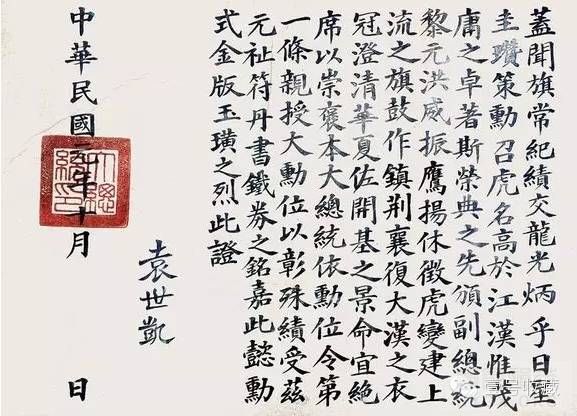 蓋聞旗常紀績交龍光炳乎日星
圭瓚策勳召虎名高於江漢惟茂
庸之卓著斯榮典之先頒副總統
黎元洪威振鷹揚休徵虎變建上
流之旗鼓作鎮荊襄復大漢之衣
冠澄清華夏佐開基之景命宜絕
席以崇褒本大總統依勳位令第
一條親授大勳位以彰殊績受茲
元祉符丹書鐵券之銘嘉此懿勳
式金版玉璜之烈此證
袁世凱
中華民國年十月 日
大總統印
壹号收藏